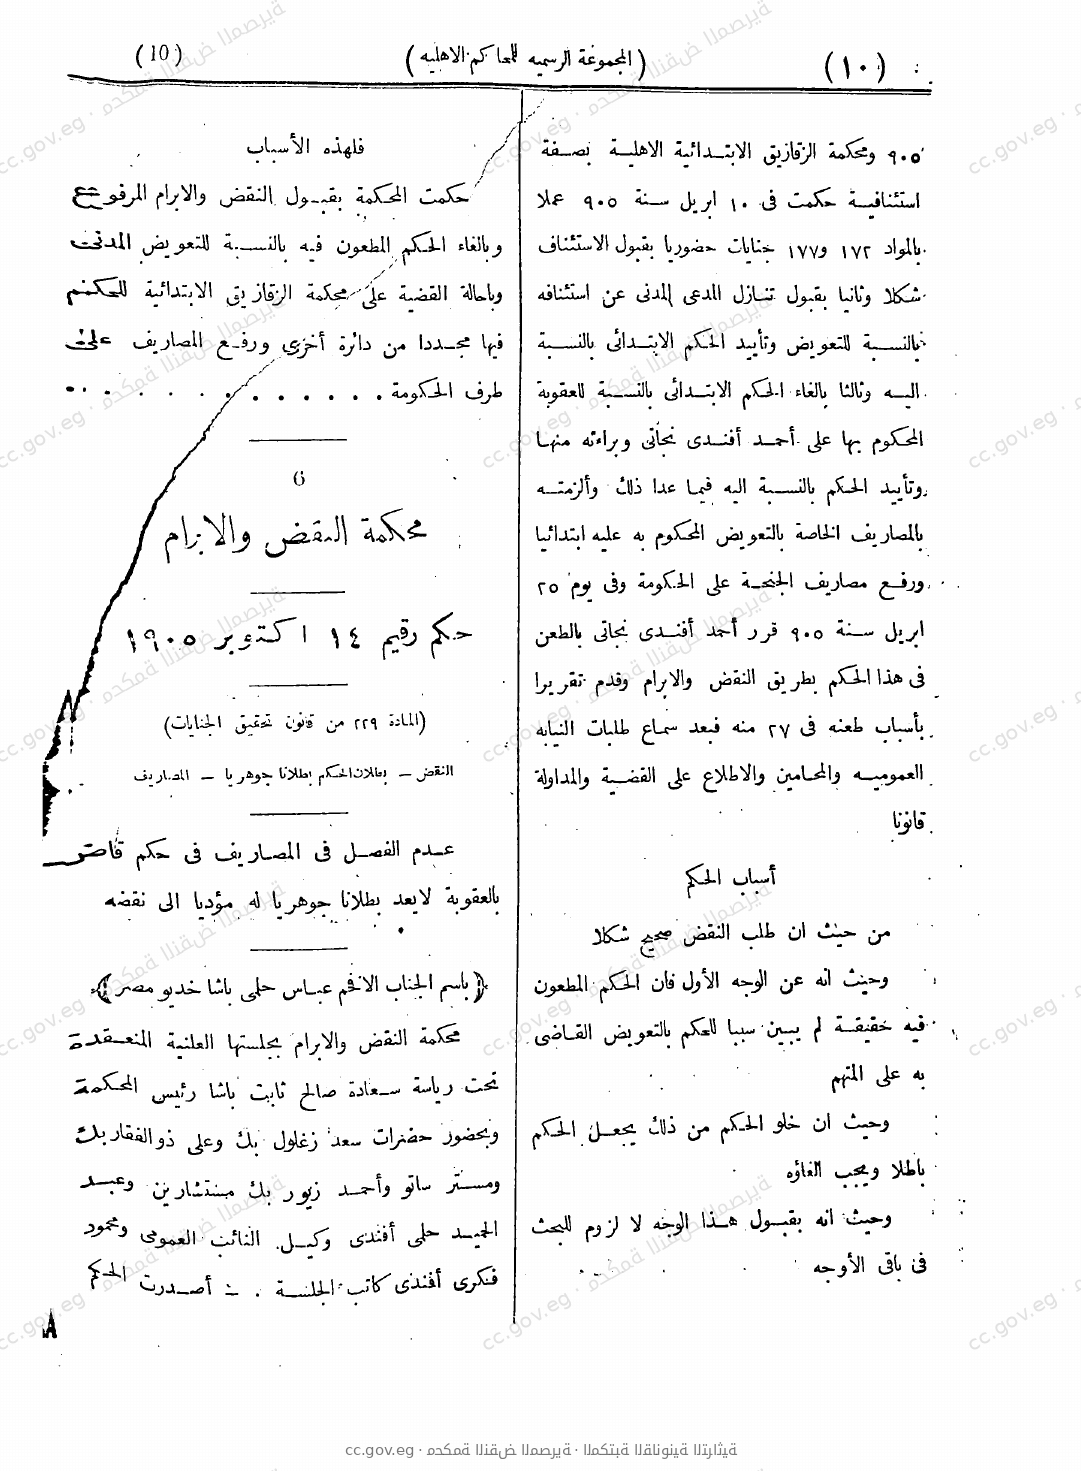 (١٠)
(المجموعة الرسميه للمحاكم الاهليه)
(10)
٩٠٥ ومحكمة الزقازيق الابتدائية الاهلية بصفة
استئنافية حكمت فى ١٠ ابريل سنة ٩٠٥ عملا
بالمواد ١٧٢ و١٧٧ جنايات حضوريا بقبول الاستئناف
شكلا وثانيا بقبول تنازل المدعى المدنى عن استئنافه
بالنسبة للتعويض وتأييد الحكم الابتدائى بالنسبة
اليه وثالثا بالغاء الحكم الابتدائى بالنسبة للعقوبة
المحكوم بها على أحمد أفندى نجاتى وبراءته منها
وتأييد الحكم بالنسبة اليه فيما عدا ذلك وألزمته
بالمصاريف الخاصة بالتعويض المحكوم به عليه ابتدائيا
ورفع مصاريف الجنحة على الحكومة وفى يوم ٢٥
ابريل سنة ٩٠٥ قرر أحمد أفندى نجاتى بالطعن
فى هذا الحكم بطريق النقض والابرام وقدم تقريرا
بأسباب طعنه فى ٢٧ منه فبعد سماع طلبات النيابه
العموميه والمحامين والاطلاع على القضية والمداولة
قانونا
أسباب الحكم
من حيث ان طلب النقض صحيح شكلا
وحيث انه عن الوجه الأول فان الحكم المطعون
فيه حقيقة لم يبين سببا للحكم بالتعويض القاضى
به على المتهم
وحيث ان خلو الحكم من ذلك يجعل الحكم
باطلا ويجب الغاؤه
وحيث انه بقبول هذا الوجه لا لزوم للبحث
فى باقى الأوجه
فلهذه الأسباب
حكمت المحكمة بقبول النقض والابرام المرفوع
وبالغاء الحكم المطعون فيه بالنسبة للتعويض المدنى
وباحالة القضية على محكمة الزقازيق الابتدائية للحكم
فيها مجددا من دائرة أخرى ورفع المصاريف على
طرف الحكومة . . . . . . . . . . . .
6
محكمة النقض والابرام
حكم رقيم ١٤ اكتوبر ١٩٠٥
(المادة ٢٢٩ من قانون تحقيق الجنايات)
النقض – بطلان الحكم بطلانا جوهريا – المصاريف
عدم الفصل فى المصاريف فى حكم قاض
بالعقوبة لايعد بطلانا جوهريا له مؤديا الى نقضه
﴿باسم الجناب الافخم عباس حلمى باشا خديو مصر﴾
محكمة النقض والابرام بجلستها العلنية المنعقدة
تحت رياسة سعادة صالح ثابت باشا رئيس المحكمة
وبحضور حضرات سعد زغلول بك وعلى ذو الفقار بك
ومستر ساتو وأحمد زيور بك مستشارين وعبد
الحميد حلمى أفندى وكيل النائب العمومى ومحمود
فكرى أفندى كاتب الجلسة . – أصدرت الحكم
cc.gov.eg · محكمة النقض المصرية · المكتبة القانونية التراثية